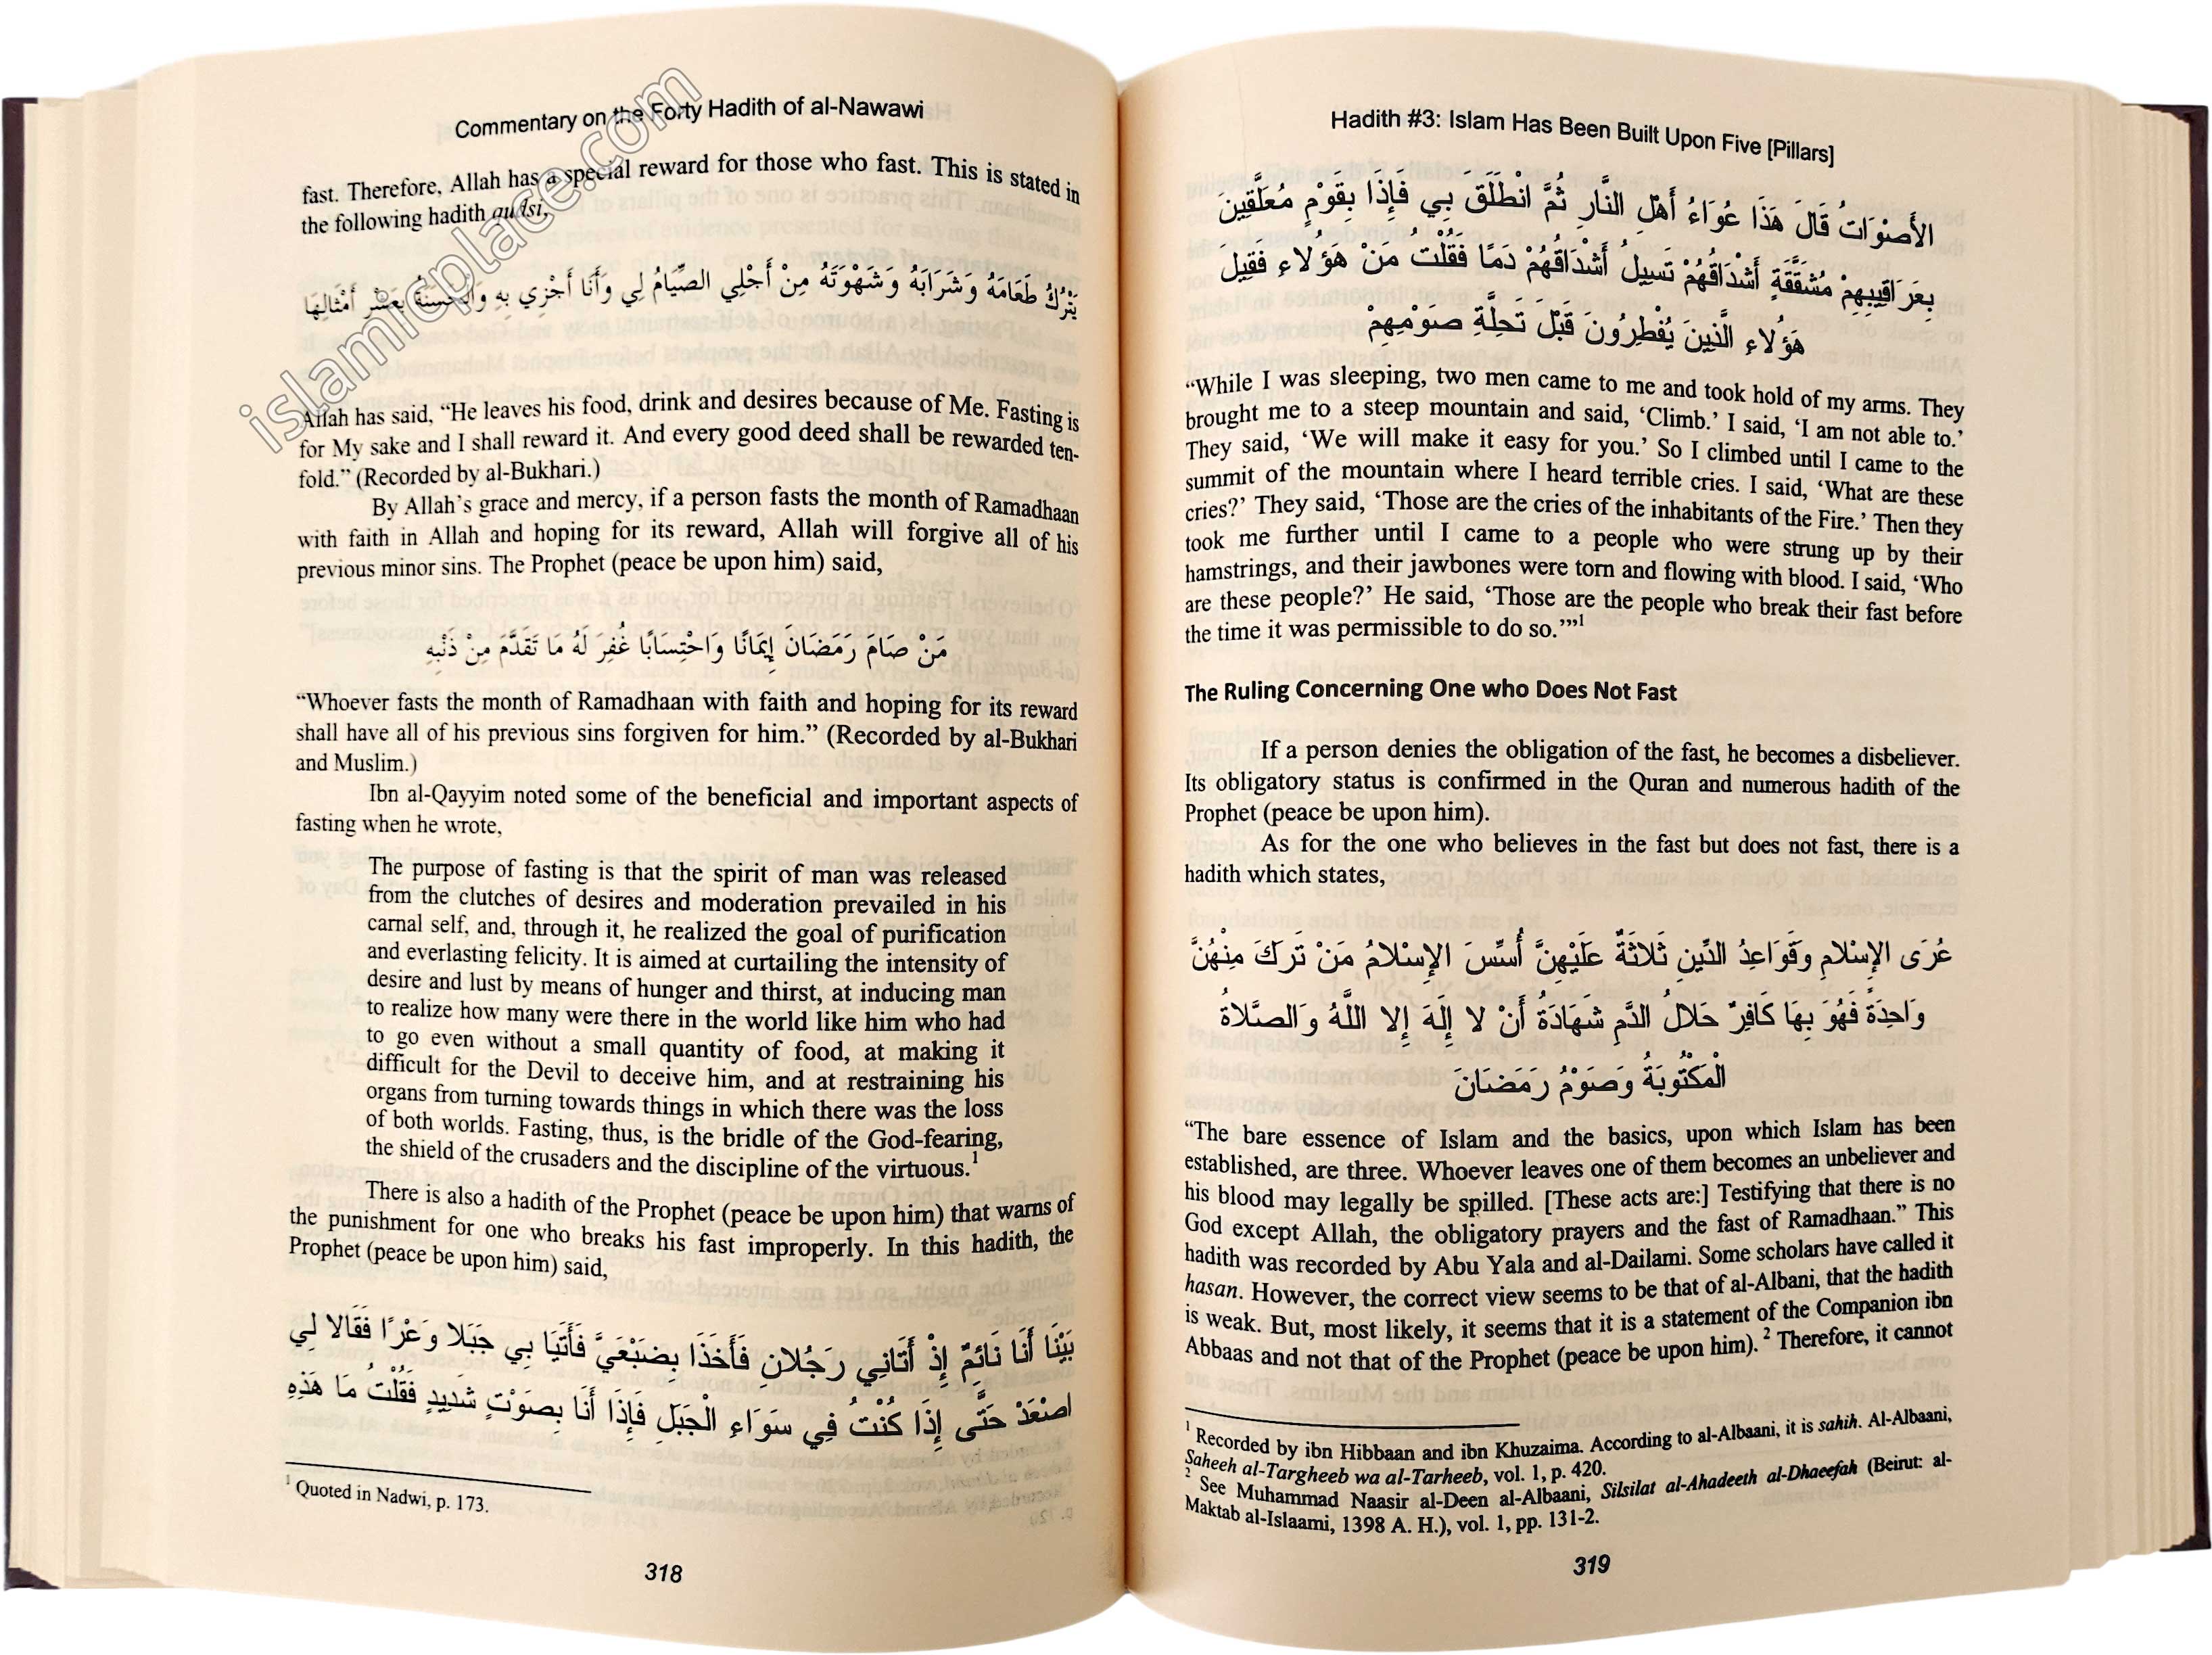 Commentary on the Forty Hadith of al-Nawawi
fast. Therefore, Allah has a special reward for those who fast. This is stated in
the following hadith qudsi,
يَتْرُكُ طَعَامَهُ وَشَرَابَهُ وَشَهْوَتَهُ مِنْ أَجْلِي الصِّيَامُ لِي وَأَنَا أَجْزِي بِهِ وَالْحَسَنَةُ بِعَشْرِ أَمْثَالِهَا
Allah has said, “He leaves his food, drink and desires because of Me. Fasting is
for My sake and I shall reward it. And every good deed shall be rewarded ten-
fold.” (Recorded by al-Bukhari.)
By Allah’s grace and mercy, if a person fasts the month of Ramadhaan
with faith in Allah and hoping for its reward, Allah will forgive all of his
previous minor sins. The Prophet (peace be upon him) said,
مَنْ صَامَ رَمَضَانَ إِيمَانًا وَاحْتِسَابًا غُفِرَ لَهُ مَا تَقَدَّمَ مِنْ ذَنْبِهِ
“Whoever fasts the month of Ramadhaan with faith and hoping for its reward
shall have all of his previous sins forgiven for him.” (Recorded by al-Bukhari
and Muslim.)
Ibn al-Qayyim noted some of the beneficial and important aspects of
fasting when he wrote,
The purpose of fasting is that the spirit of man was released
from the clutches of desires and moderation prevailed in his
carnal self, and, through it, he realized the goal of purification
and everlasting felicity. It is aimed at curtailing the intensity of
desire and lust by means of hunger and thirst, at inducing man
to realize how many were there in the world like him who had
to go even without a small quantity of food, at making it
difficult for the Devil to deceive him, and at restraining his
organs from turning towards things in which there was the loss
of both worlds. Fasting, thus, is the bridle of the God-fearing,
the shield of the crusaders and the discipline of the virtuous.1
There is also a hadith of the Prophet (peace be upon him) that warns of
the punishment for one who breaks his fast improperly. In this hadith, the
Prophet (peace be upon him) said,
بَيْنَا أَنَا نَائِمٌ إِذْ أَتَانِي رَجُلانِ فَأَخَذَا بِضَبْعَيَّ فَأَتَيَا بِي جَبَلا وَعْرًا فَقَالا لِي
اصْعَدْ حَتَّى إِذَا كُنْتُ فِي سَوَاءِ الْجَبَلِ فَإِذَا أَنَا بِصَوْتٍ شَدِيدٍ فَقُلْتُ مَا هَذِهِ
1 Quoted in Nadwi, p. 173.
318
islamicplace.com
Hadith #3: Islam Has Been Built Upon Five [Pillars]
الأَصْوَاتُ قَالَ هَذَا عُوَاءُ أَهْلِ النَّارِ ثُمَّ انْطَلَقَ بِي فَإِذَا بِقَوْمٍ مُعَلَّقِينَ
بِعَرَاقِيبِهِمْ مُشَقَّقَةٍ أَشْدَاقُهُمْ تَسِيلُ أَشْدَاقُهُمْ دَمًا فَقُلْتُ مَنْ هَؤُلاءِ فَقِيلَ
هَؤُلاءِ الَّذِينَ يُفْطِرُونَ قَبْلَ تَحِلَّةِ صَوْمِهِمْ
“While I was sleeping, two men came to me and took hold of my arms. They
brought me to a steep mountain and said, ‘Climb.’ I said, ‘I am not able to.’
They said, ‘We will make it easy for you.’ So I climbed until I came to the
summit of the mountain where I heard terrible cries. I said, ‘What are these
cries?’ They said, ‘Those are the cries of the inhabitants of the Fire.’ Then they
took me further until I came to a people who were strung up by their
hamstrings, and their jawbones were torn and flowing with blood. I said, ‘Who
are these people?’ He said, ‘Those are the people who break their fast before
the time it was permissible to do so.’”1
The Ruling Concerning One who Does Not Fast
If a person denies the obligation of the fast, he becomes a disbeliever.
Its obligatory status is confirmed in the Quran and numerous hadith of the
Prophet (peace be upon him).
As for the one who believes in the fast but does not fast, there is a
hadith which states,
عُرَى الإِسْلامِ وَقَوَاعِدُ الدِّينِ ثَلاثَةٌ عَلَيْهِنَّ أُسِّسَ الإِسْلامُ مَنْ تَرَكَ مِنْهُنَّ
وَاحِدَةً فَهُوَ بِهَا كَافِرٌ حَلالُ الدَّمِ شَهَادَةُ أَنْ لا إِلَهَ إِلا اللَّهُ وَالصَّلاةُ
الْمَكْتُوبَةُ وَصَوْمُ رَمَضَانَ
“The bare essence of Islam and the basics, upon which Islam has been
established, are three. Whoever leaves one of them becomes an unbeliever and
his blood may legally be spilled. [These acts are:] Testifying that there is no
God except Allah, the obligatory prayers and the fast of Ramadhaan.” This
hadith was recorded by Abu Yala and al-Dailami. Some scholars have called it
hasan. However, the correct view seems to be that of al-Albani, that the hadith
is weak. But, most likely, it seems that it is a statement of the Companion ibn
Abbaas and not that of the Prophet (peace be upon him). 2 Therefore, it cannot
1 Recorded by ibn Hibbaan and ibn Khuzaima. According to al-Albaani, it is sahih. Al-Albaani,
Saheeh al-Targheeb wa al-Tarheeb, vol. 1, p. 420.
2 See Muhammad Naasir al-Deen al-Albaani, Silsilat al-Ahadeeth al-Dhaeefah (Beirut: al-
Maktab al-Islaami, 1398 A. H.), vol. 1, pp. 131-2.
319